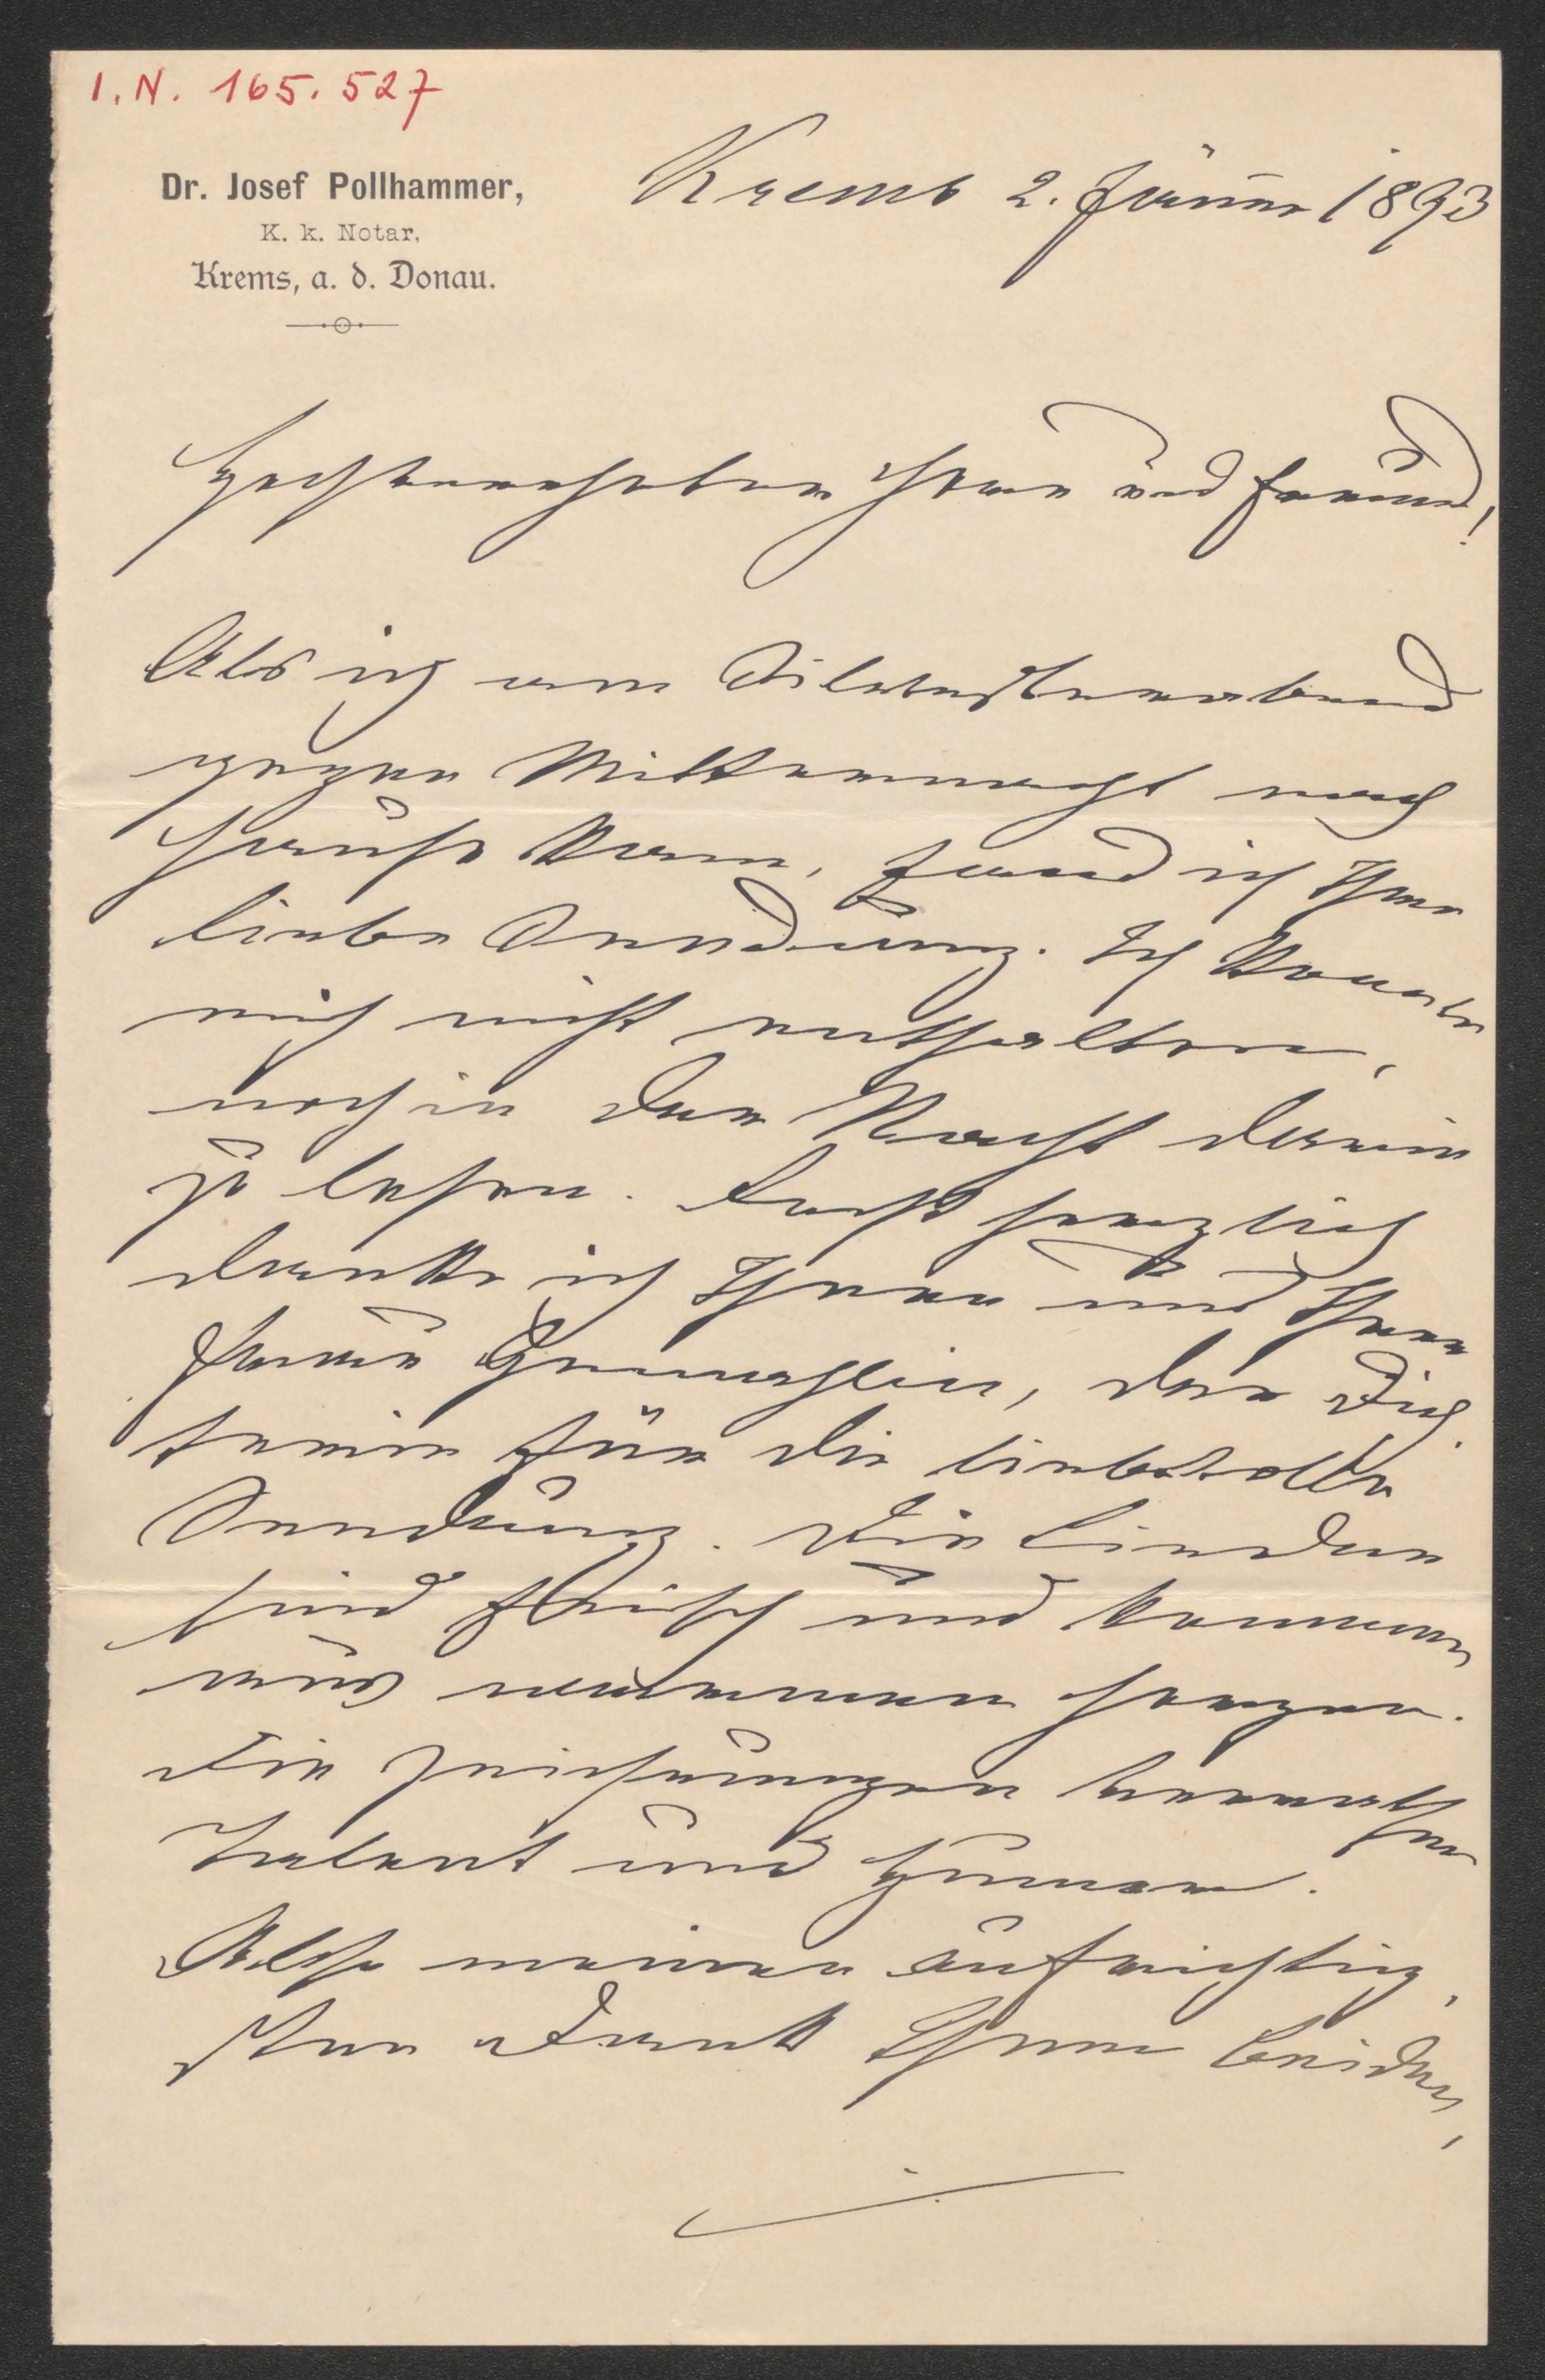 I. N. 165.527
Dr. Josef Pollhammer,
K. k. Notar,
Krems, a. d. Donau.
Krems 2. Jänner 1893
Hochverehrter Herr und Freund!
Als ich am Silvesterabend
gegen Mitternacht nach
Hause kam, fand ich Ihre
liebe Sendung. Ich konnte
mich nicht enthalten,
noch in der Nacht darin
zu lesen. Recht herzlich
danke ich Ihnen und Ihrer
Frau Gemahlin, der Dich
terin für die liebevolle
Sendung. Die Lieder
sind frisch und kommen
aus warmem Herzen.
Die Zeichnungen verrathen
Talent und Humor.
Also meinen aufrichtig
sten Dank Ihnen beiden,